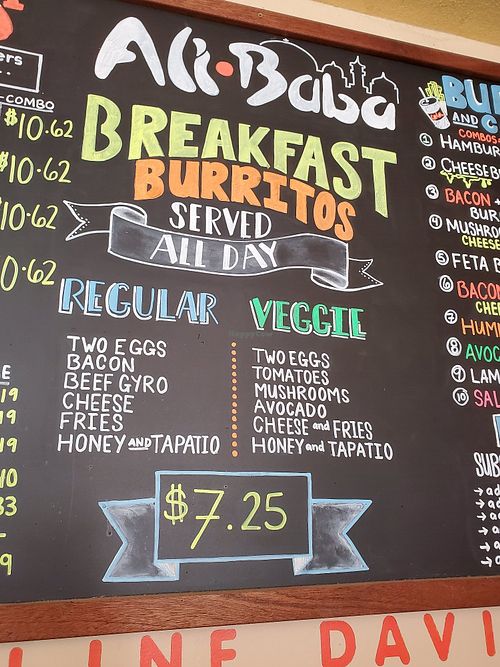 Ali•Baba
BREAKFAST
BURRITOS
SERVED
ALL DAY
REGULAR
TWO EGGS
BACON
BEEF GYRO
CHEESE
FRIES
HONEY AND TAPATIO
VEGGIE
TWO EGGS
TOMATOES
MUSHROOMS
AVOCADO
CHEESE and FRIES
HONEY and TAPATIO
$7.25
-COMBO
$10.62
$10.62
$10.62
0.62
19
9
49
40
33
9
BU
AND C
COMBOS
① HAMBUR
② CHEESEB
③ BACON +
BUR
④ MUSHROO
CHEESE
⑤ FETA B
⑥ BACON
CHEE
⑦ HUMM
⑧ AVOC
⑨ LAM
⑩ SAL
SUBS
→ ad
→ a
→ a
→ a
→ a
LINE DAVI